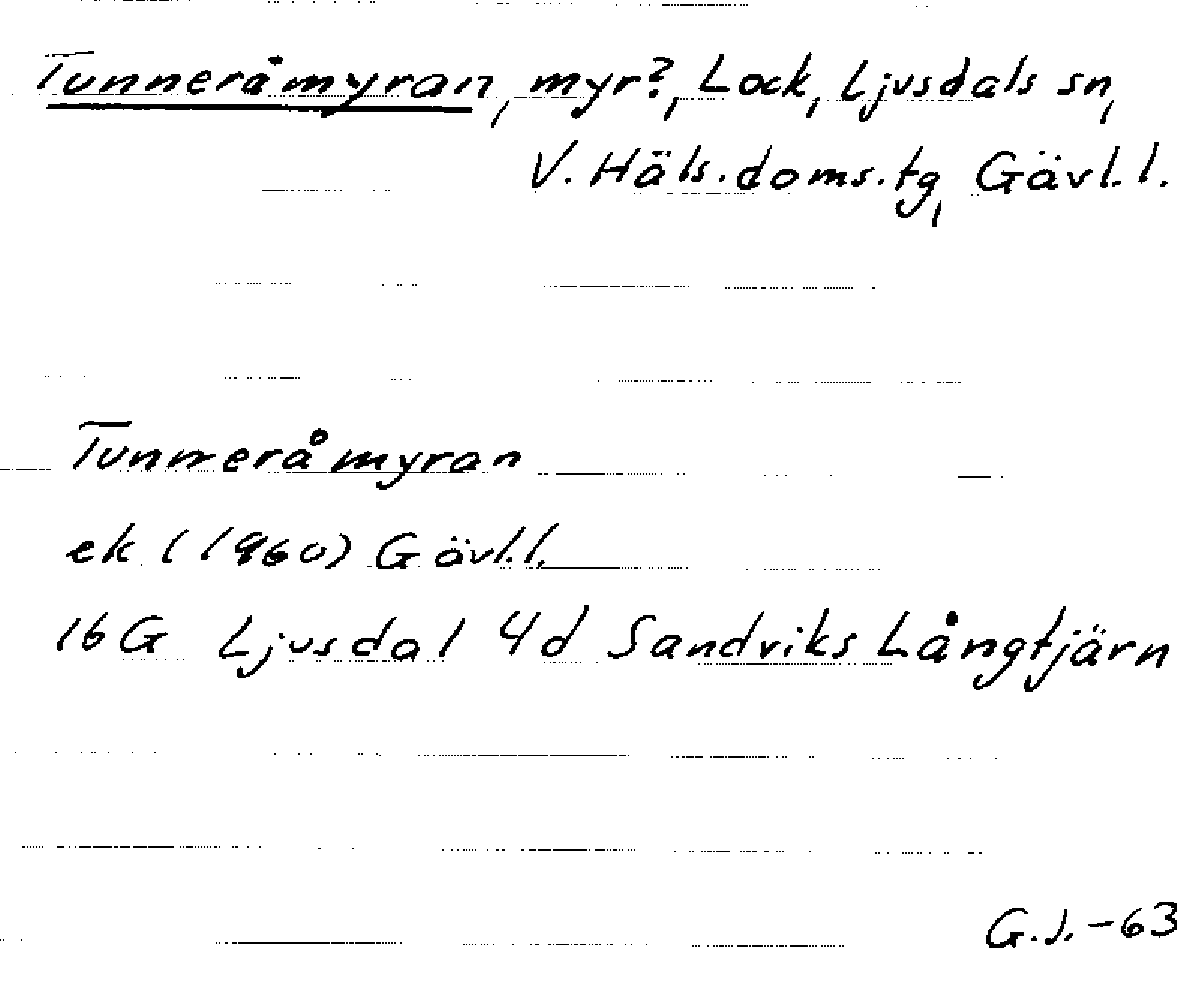 Tunneråmyran, myr?, Lock, Ljusdals sn,
V. Häls. doms. tg, Gävl. l.
Tunneråmyran
ek (1960) Gävl. l.
16 G Ljusdal 4d Sandviks Långtjärn
G.J. -63